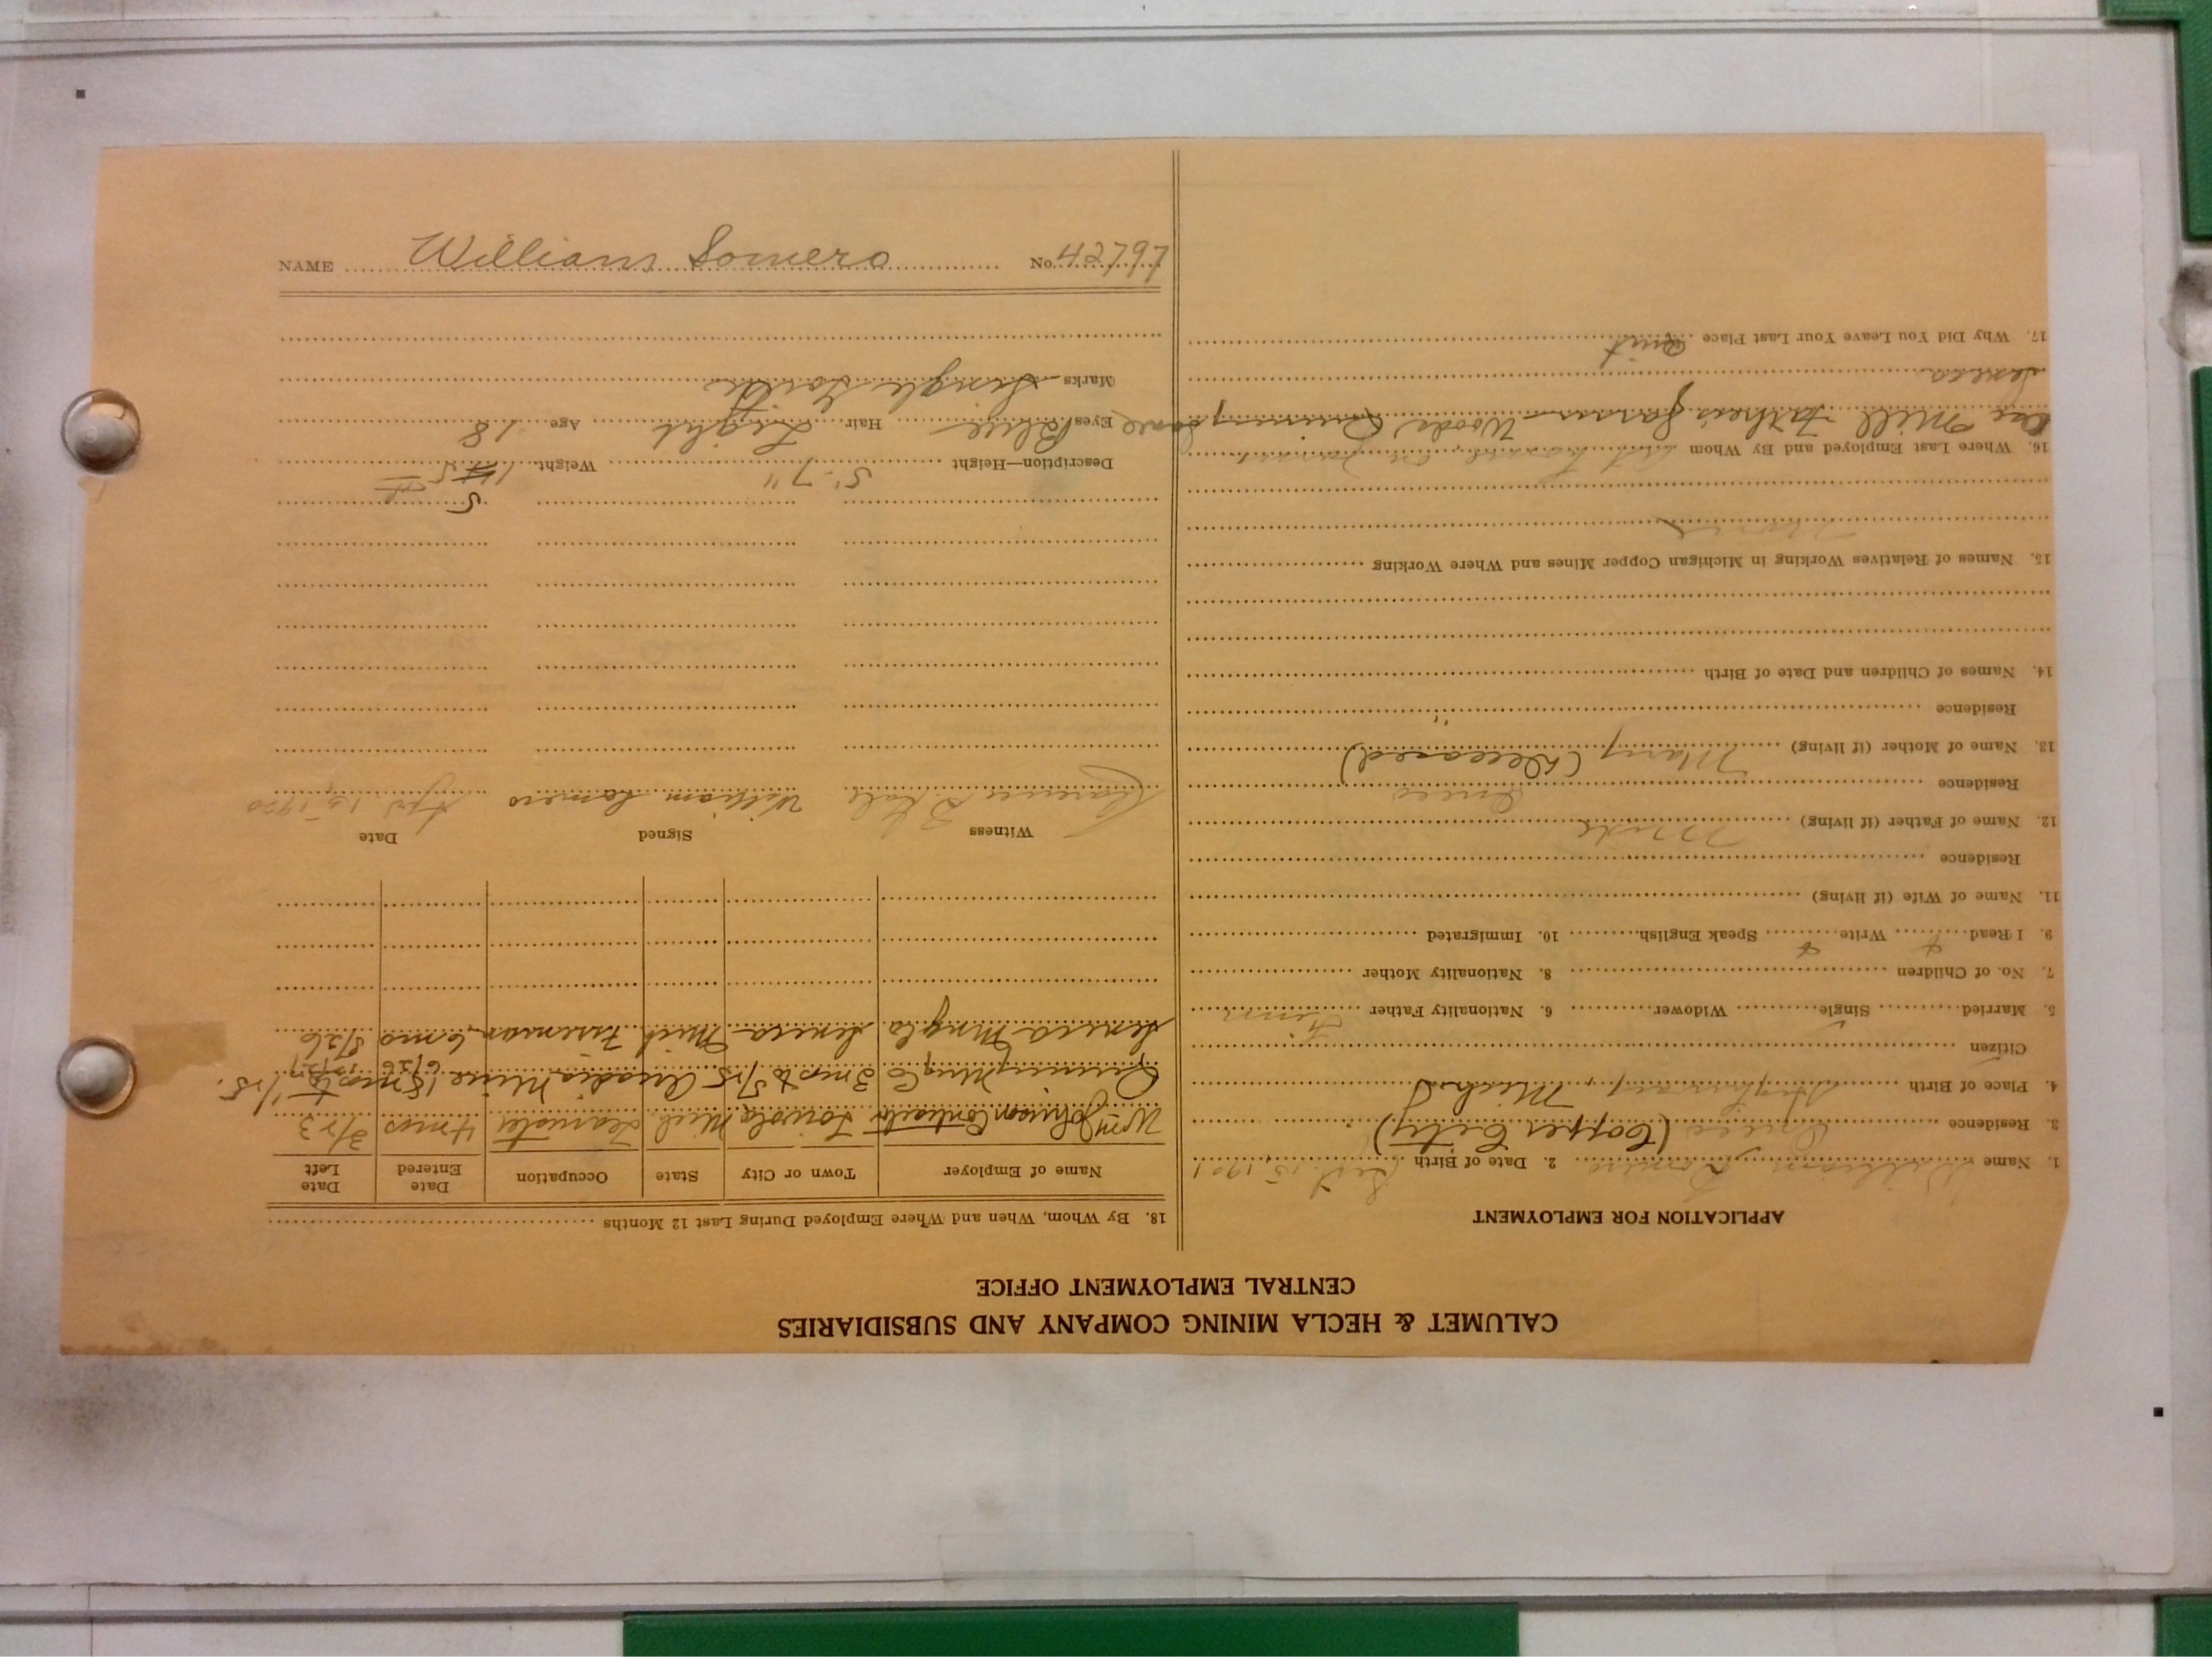 CALUMET & HECLA MINING COMPANY AND SUBSIDIARIES
CENTRAL EMPLOYMENT OFFICE
APPLICATION FOR EMPLOYMENT
1. Name William Somero 2. Date of Birth Sept. 15, 1901
3. Residence (Copper City)
4. Place of Birth Mich
Citizen
5. Married Single Widower 6. Nationality Father Finn
7. No. of Children 8. Nationality Mother
9. I Read Write Speak English 10. Immigrated
11. Name of Wife (if living)
Residence
12. Name of Father (if living)
Residence
13. Name of Mother (if living) Mary (Deceased)
Residence "
14. Names of Children and Date of Birth
15. Names of Relatives Working in Michigan Copper Mines and Where Working
None
16. Where Last Employed and By Whom
Mill Father's farm Woods Quincy
Seneca
17. Why Did You Leave Your Last Place Quit
18. By Whom, When and Where Employed During Last 12 Months
Name of Employer Town or City State Occupation Date Entered Date Left
Wm Johnson Contractor Mich Teamster 4 mos 3/23
Quincy Mng Co 3 mos to Arcadia Mine 18 mos to 1/25.
6/26
Seneca Mng Co Seneca Mich Fireman 6 mo 8/26
Witness Signed Date
Clarence William Somero 15, 1920
5
Description—Height 5' 7" Weight
Eyes Blue Hair Light Age 18
Marks Single
NAME William Somero No. 42797